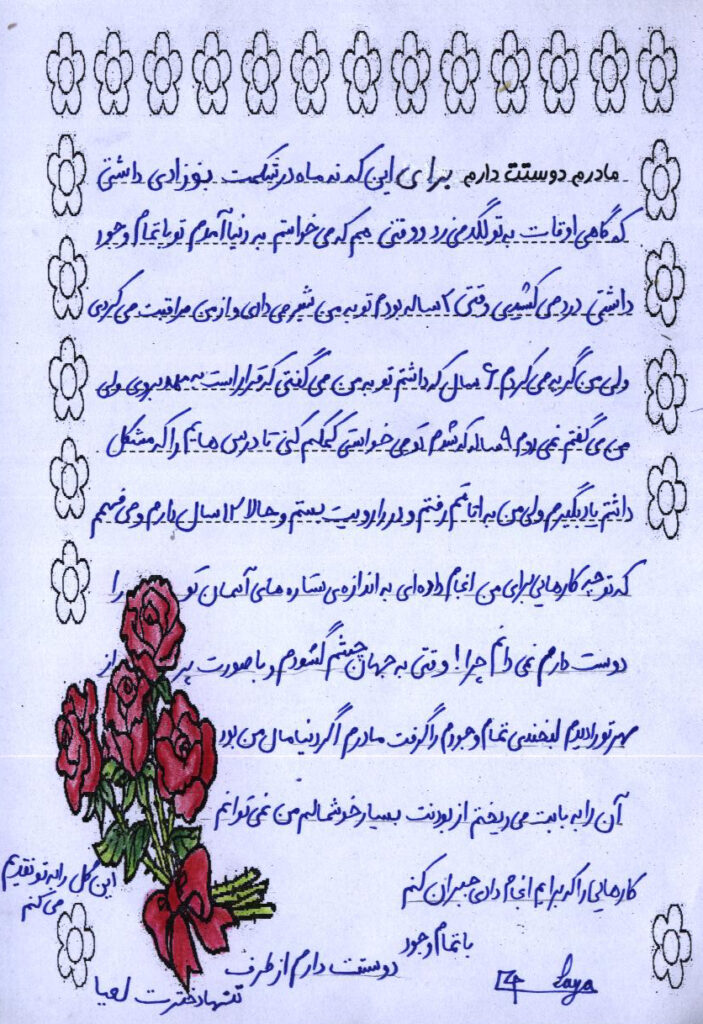 مادرم دوستت دارم برای این که نه ماه در شکمت نوزادی داشتی
که گاهی اوقات به تو لگد می زد و وقتی هم که می خواستم به دنیا آمدم تو با تمام وجود
داشتی درد می کشیدی وقتی ۲ ساله بودم تو به من شیر می دادی و از من مراقبت می کردی
ولی من گریه می کردم ۶ سال که داشتم تو به من می گفتی که قرار است به مهد بروی ولی
من می گفتم نمی روم ۹ ساله که شدم تو می خواستی کمکم کنی تا درس هایم را که مشکل
داشتم یاد بگیرم ولی من به اتاقم رفتم و در را رویت بستم و حالا ۱۲ سال دارم و می فهمم
که تو چه کارهایی برای من انجام داده ای به اندازه ی ستاره های آسمان تو را
دوست دارم نمی دانم چرا! وقتی به جهان چشم گشودم و با صورت پر از
مهر تو را دیدم لبخندی تمام وجودم را گرفت مادرم اگر دنیا مال من بود
آن را به پایت می ریختم از بودنت بسیار خوشحالم من نمی توانم
کارهایی را که برایم انجام دادی جبران کنم
این گل را به تو تقدیم
می کنم
با تمام وجود
دوستت دارم از طرف
تنها دخترت لعیا
Laya